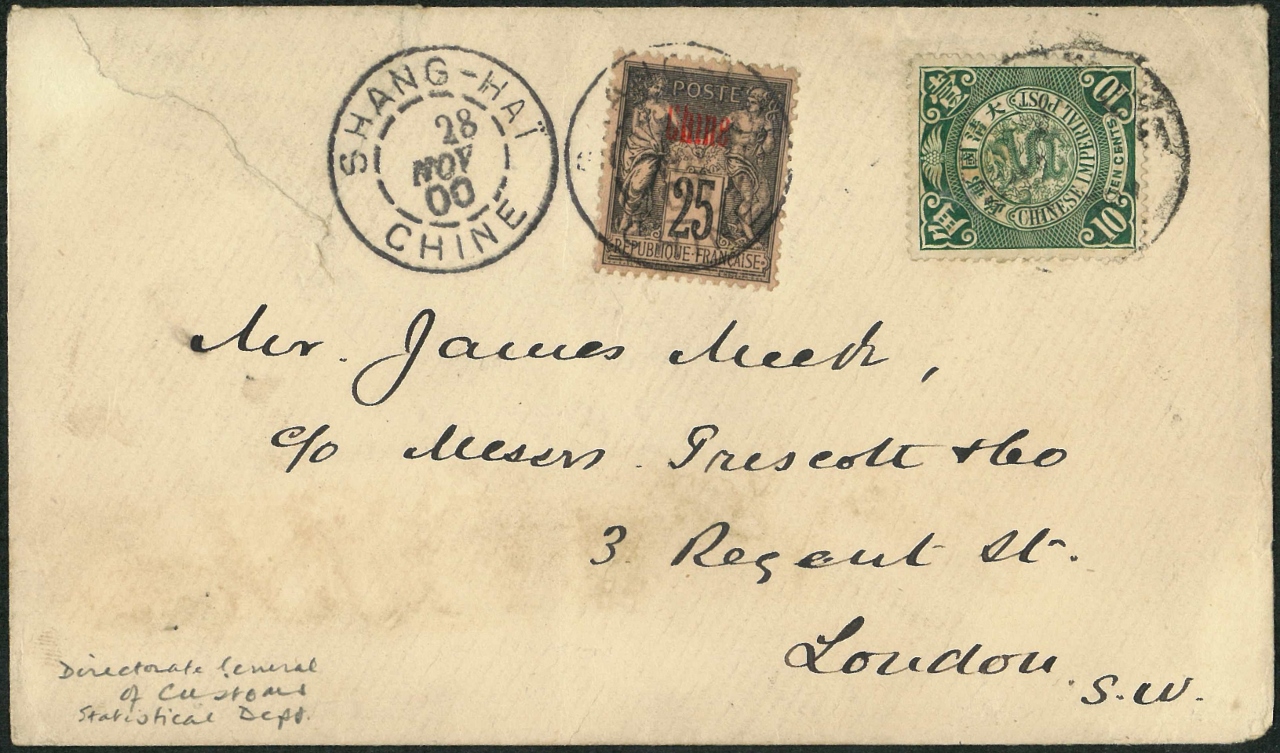 SHANG-HAÏ
28
NOV
00
CHINE
POSTE
Chine
25
RÉPUBLIQUE FRANÇAISE
大清國郵政
CHINESE IMPERIAL POST
10
10
TEN CENTS
Mr. James Meek,
c/o Messrs. Prescott & Co
3 Regent St.
London
S.W.
Directorate General
of Customs
Statistical Dept.